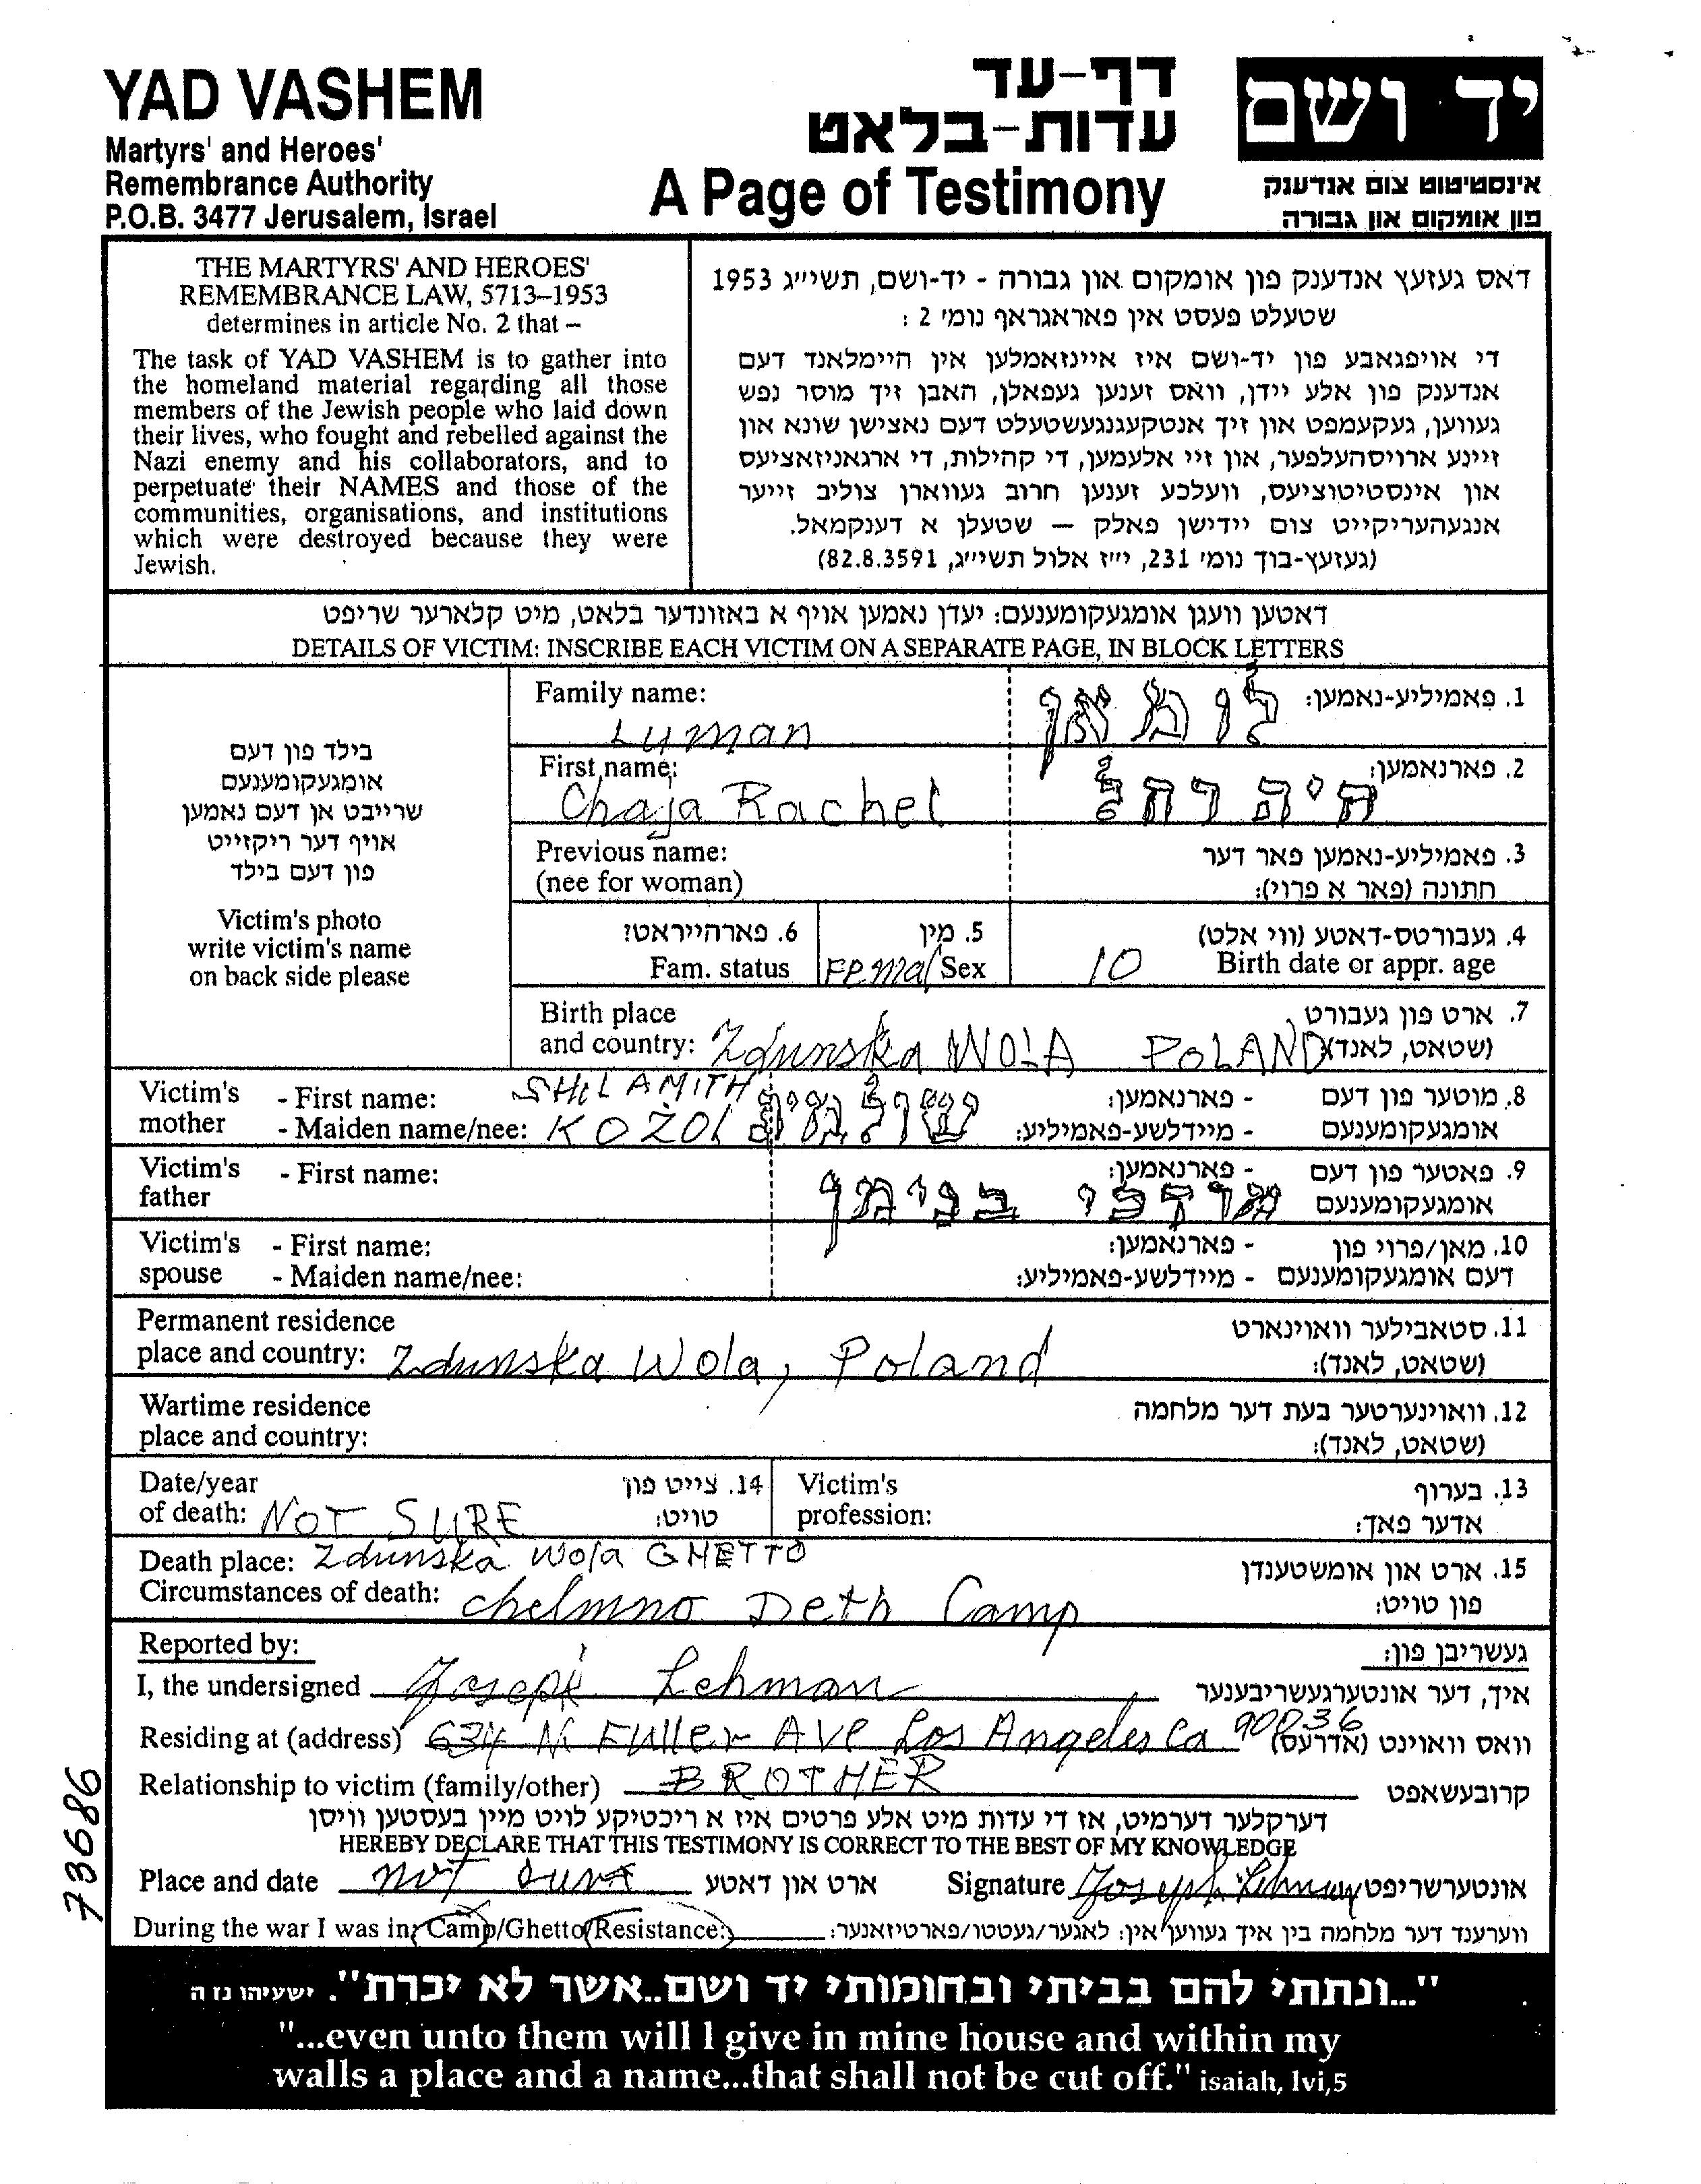 YAD VASHEM
Martyrs' and Heroes'
Remembrance Authority
P.O.B. 3477 Jerusalem, Israel
דף-עד
עדות-בלאט
A Page of Testimony
יד ושם
אינסטיטוט צום אנדענק
פון אומקום און גבורה
THE MARTYRS' AND HEROES'
REMEMBRANCE LAW, 5713–1953
determines in article No. 2 that –
The task of YAD VASHEM is to gather into
the homeland material regarding all those
members of the Jewish people who laid down
their lives, who fought and rebelled against the
Nazi enemy and his collaborators, and to
perpetuate their NAMES and those of the
communities, organisations, and institutions
which were destroyed because they were
Jewish.
דאס געזעץ אנדענק פון אומקום און גבורה - יד-ושם, תשי״ג 1953
שטעלט פעסט אין פאראגראף נומ' 2 :
די אויפגאבע פון יד-ושם איז איינזאמלען אין היימלאנד דעם
אנדענק פון אלע יידן, וואס זענען געפאלן, האבן זיך מוסר נפש
געווען, געקעמפט און זיך אנטקעגנגעשטעלט דעם נאצישן שונא און
זיינע ארויסהעלפער, און זיי אלעמען, די קהילות, די ארגאניזאציעס
און אינסטיטוציעס, וועלכע זענען חרוב געווארן צוליב זייער
אנגעהעריקייט צום יידישן פאלק — שטעלן א דענקמאל.
(געזעץ-בוך נומ' 231, י״ז אלול תשי״ג, 82.8.3591)
דאטען וועגן אומגעקומענעם: יעדן נאמען אויף א באזונדער בלאט, מיט קלארער שריפט
DETAILS OF VICTIM: INSCRIBE EACH VICTIM ON A SEPARATE PAGE, IN BLOCK LETTERS
בילד פון דעם
אומגעקומענעם
שרייבט אן דעם נאמען
אויף דער ריקזייט
פון דעם בילד
Victim's photo
write victim's name
on back side please
Family name: לומאן 1. פאמיליע-נאמען:
Luman
First name: 2. פארנאמען:
Chaja Rachel חיה רחל
Previous name: 3. פאמיליע-נאמען פאר דער
(nee for woman) חתונה (פאר א פרוי):
6. פארהייראט? 5. מין 4. געבורטס-דאטע (ווי אלט)
Fam. status Femal Sex 10 Birth date or appr. age
Birth place 7. ארט פון געבורט
and country: Zdunska WOLA POLAND (שטאט, לאנד)
Victim's - First name: SHULAMITH - פארנאמען: 8. מוטער פון דעם
mother - Maiden name/nee: KOZOL שולמית - מיידלשע-פאמיליע: אומגעקומענעם
Victim's - First name: - פארנאמען: 9. פאטער פון דעם
father מרדכי בנימן אומגעקומענעם
Victim's - First name: - פארנאמען: 10. מאן/פרוי פון
spouse - Maiden name/nee: - מיידלשע-פאמיליע: דעם אומגעקומענעם
Permanent residence 11. סטאבילער וואוינארט
place and country: Zdunska Wola, Poland (שטאט, לאנד):
Wartime residence 12. וואוינערטער בעת דער מלחמה
place and country: (שטאט, לאנד):
Date/year 14. צייט פון Victim's 13. בערוף
of death: NOT SURE טויט: profession: אדער פאך:
Death place: Zdunska Wola GHETTO 15. ארט און אומשטענדן
Circumstances of death: Chelmno Deth Camp פון טויט:
Reported by: געשריבן פון:
I, the undersigned Joseph Lehman איך, דער אונטערגעשריבענער
Residing at (address) 634 N Fuller Ave Los Angeles Ca 90036 וואס וואוינט (אדרעס)
Relationship to victim (family/other) BROTHER קרובעשאפט
דערקלער דערמיט, אז די עדות מיט אלע פרטים איז א ריכטיקע לויט מיין בעסטען וויסן
HEREBY DECLARE THAT THIS TESTIMONY IS CORRECT TO THE BEST OF MY KNOWLEDGE
Place and date not sure ארט און דאטע Signature Joseph Lehman אונטערשריפט
During the war I was in: Camp/Ghetto/Resistance: ווערענד דער מלחמה בין איך געווען אין: לאגער/געטטו/פארטיזאנער:
73686
"...ונתתי להם בביתי ובחומותי יד ושם..אשר לא יכרת". ישעיהו נז ה
"...even unto them will I give in mine house and within my
walls a place and a name...that shall not be cut off." isaiah, lvi,5